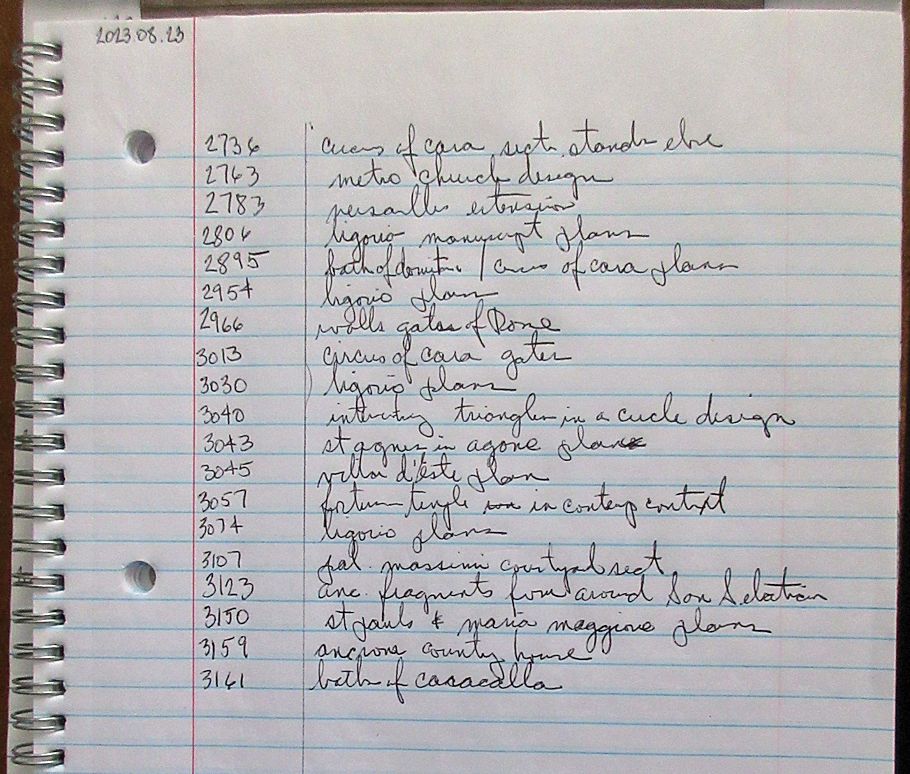 2023.08.23
2736 circus of cara sect. stands elev
2763 metro church design
2783 versailles extension
2806 ligorio manuscript plans
2895 bath of domitia / circus of cara plans
2954 ligorio plans
2966 walls gates of Rome
3013 circus of cara gates
3030 ligorio plans
3040 intersecting triangles in a circle design
3043 st agnes in agone plans
3045 villa d'este plan
3057 fortuna temple in contemp context
3074 ligorio plans
3107 pal. massimi courtyard sect
3123 anc. fragments from around San Sebastian
3150 st pauls & maria maggiore plans
3159 country house
3161 baths of caracalla